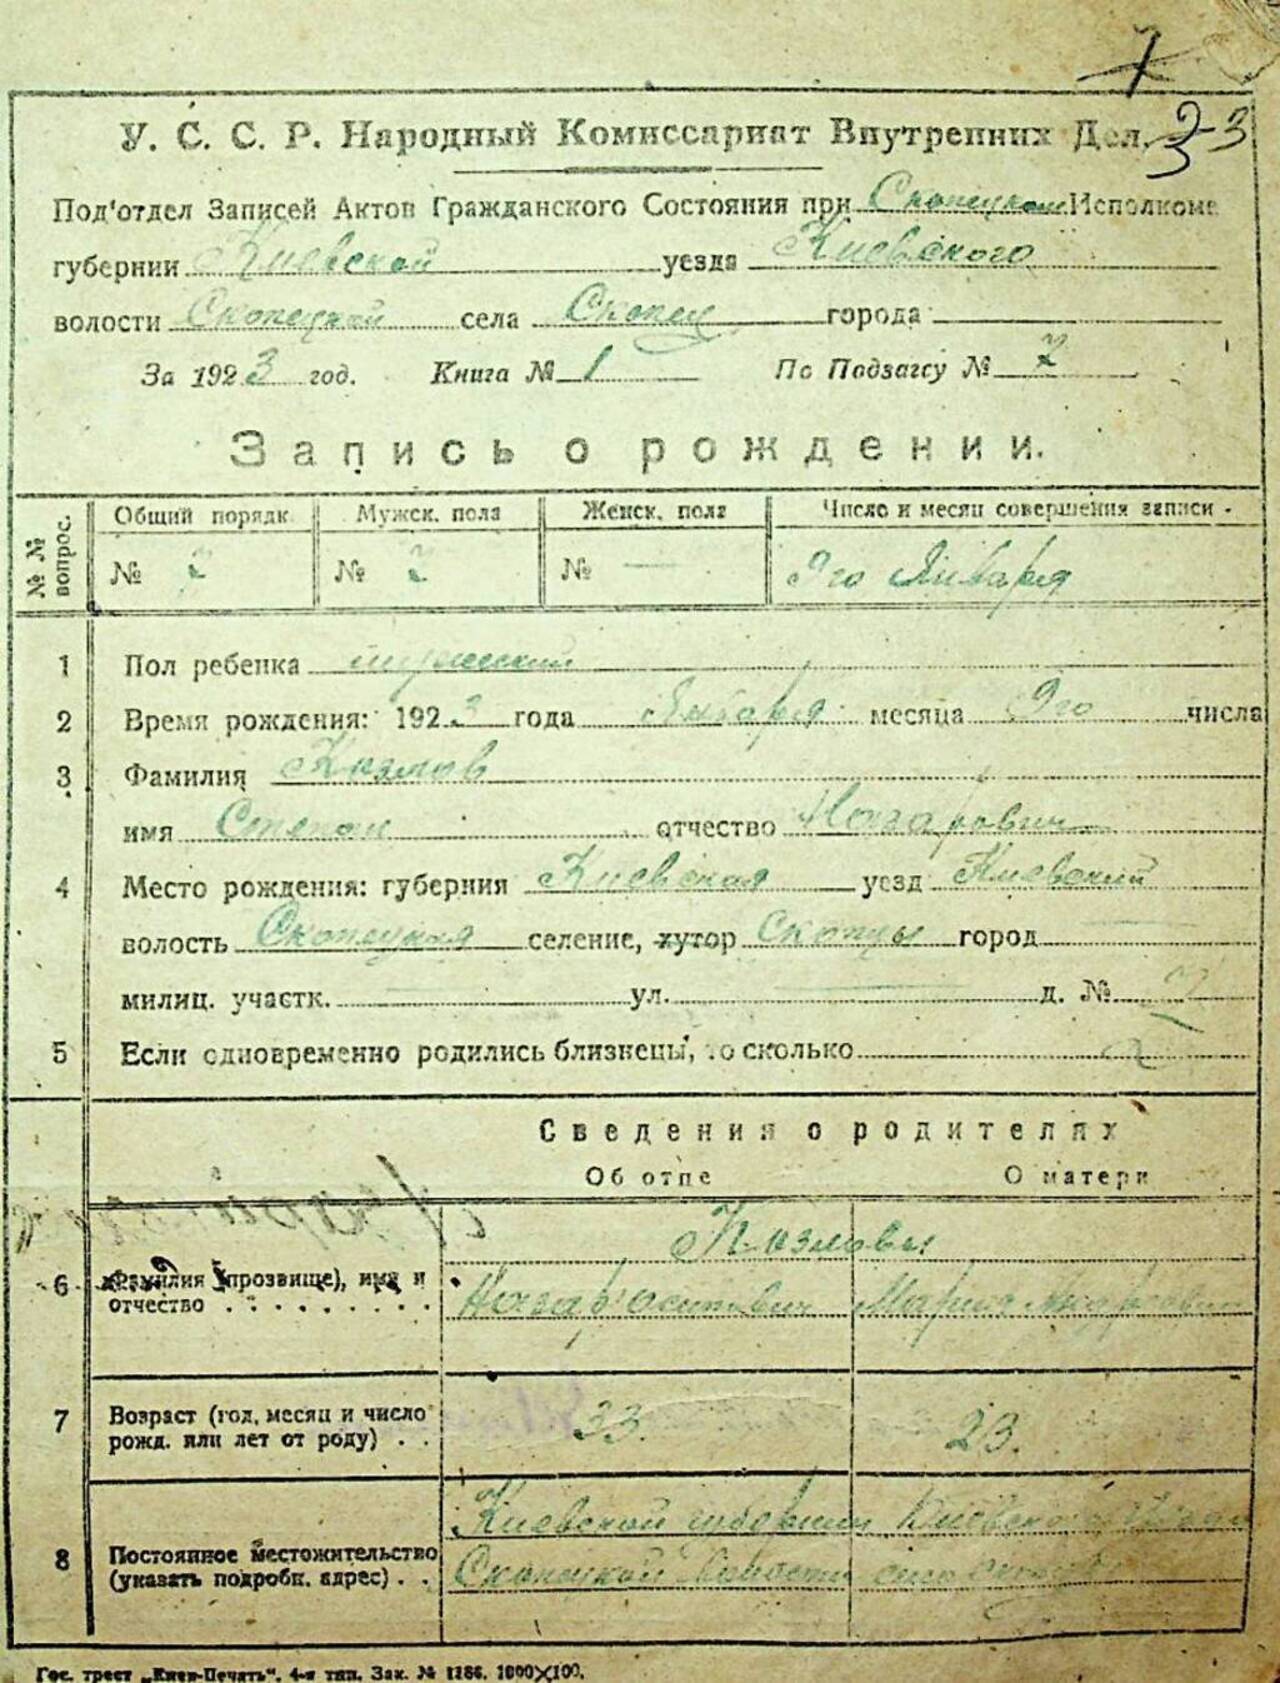 7
У. С. С. Р. Народный Комиссариат Внутренних Дел.
3-3
Под'отдел Записей Актов Гражданского Состояния при Скопецком Исполкоме
губернии Киевской уезда Киевского
волости Скопецкой села Скопец города
За 1923 год. Книга № 1 По Подзагсу № 7
Запись о рождении.
№ № вопрос. Общий порядк. Мужск. пола Женск. пола Число и месяц совершения записи
№ № № — 9го Января
1 Пол ребенка мужеский
2 Время рождения: 1923 года Января месяца 9го числа
3 Фамилия Козлов
имя Степан отчество Назарович
4 Место рождения: губерния Киевская уезд Киевский
волость Скопецкая селение, хутор Скопцы город —
милиц. участк. — ул. — д. №
5 Если одновременно родились близнецы, то сколько
Сведения о родителях
Об отце О матери
Козловы
6 Фамилия (прозвище), имя и отчество Назар Осипович Мария
7 Возраст (год, месяц и число рожд. или лет от роду) 33. 23.
8 Постоянное местожительство (указать подробн. адрес) Киевской губернии Киевского
Скопецкой Волости село
Гос. трест „Киев-Печать“. 4-я тип. Зак. № 1286. 1000×100.